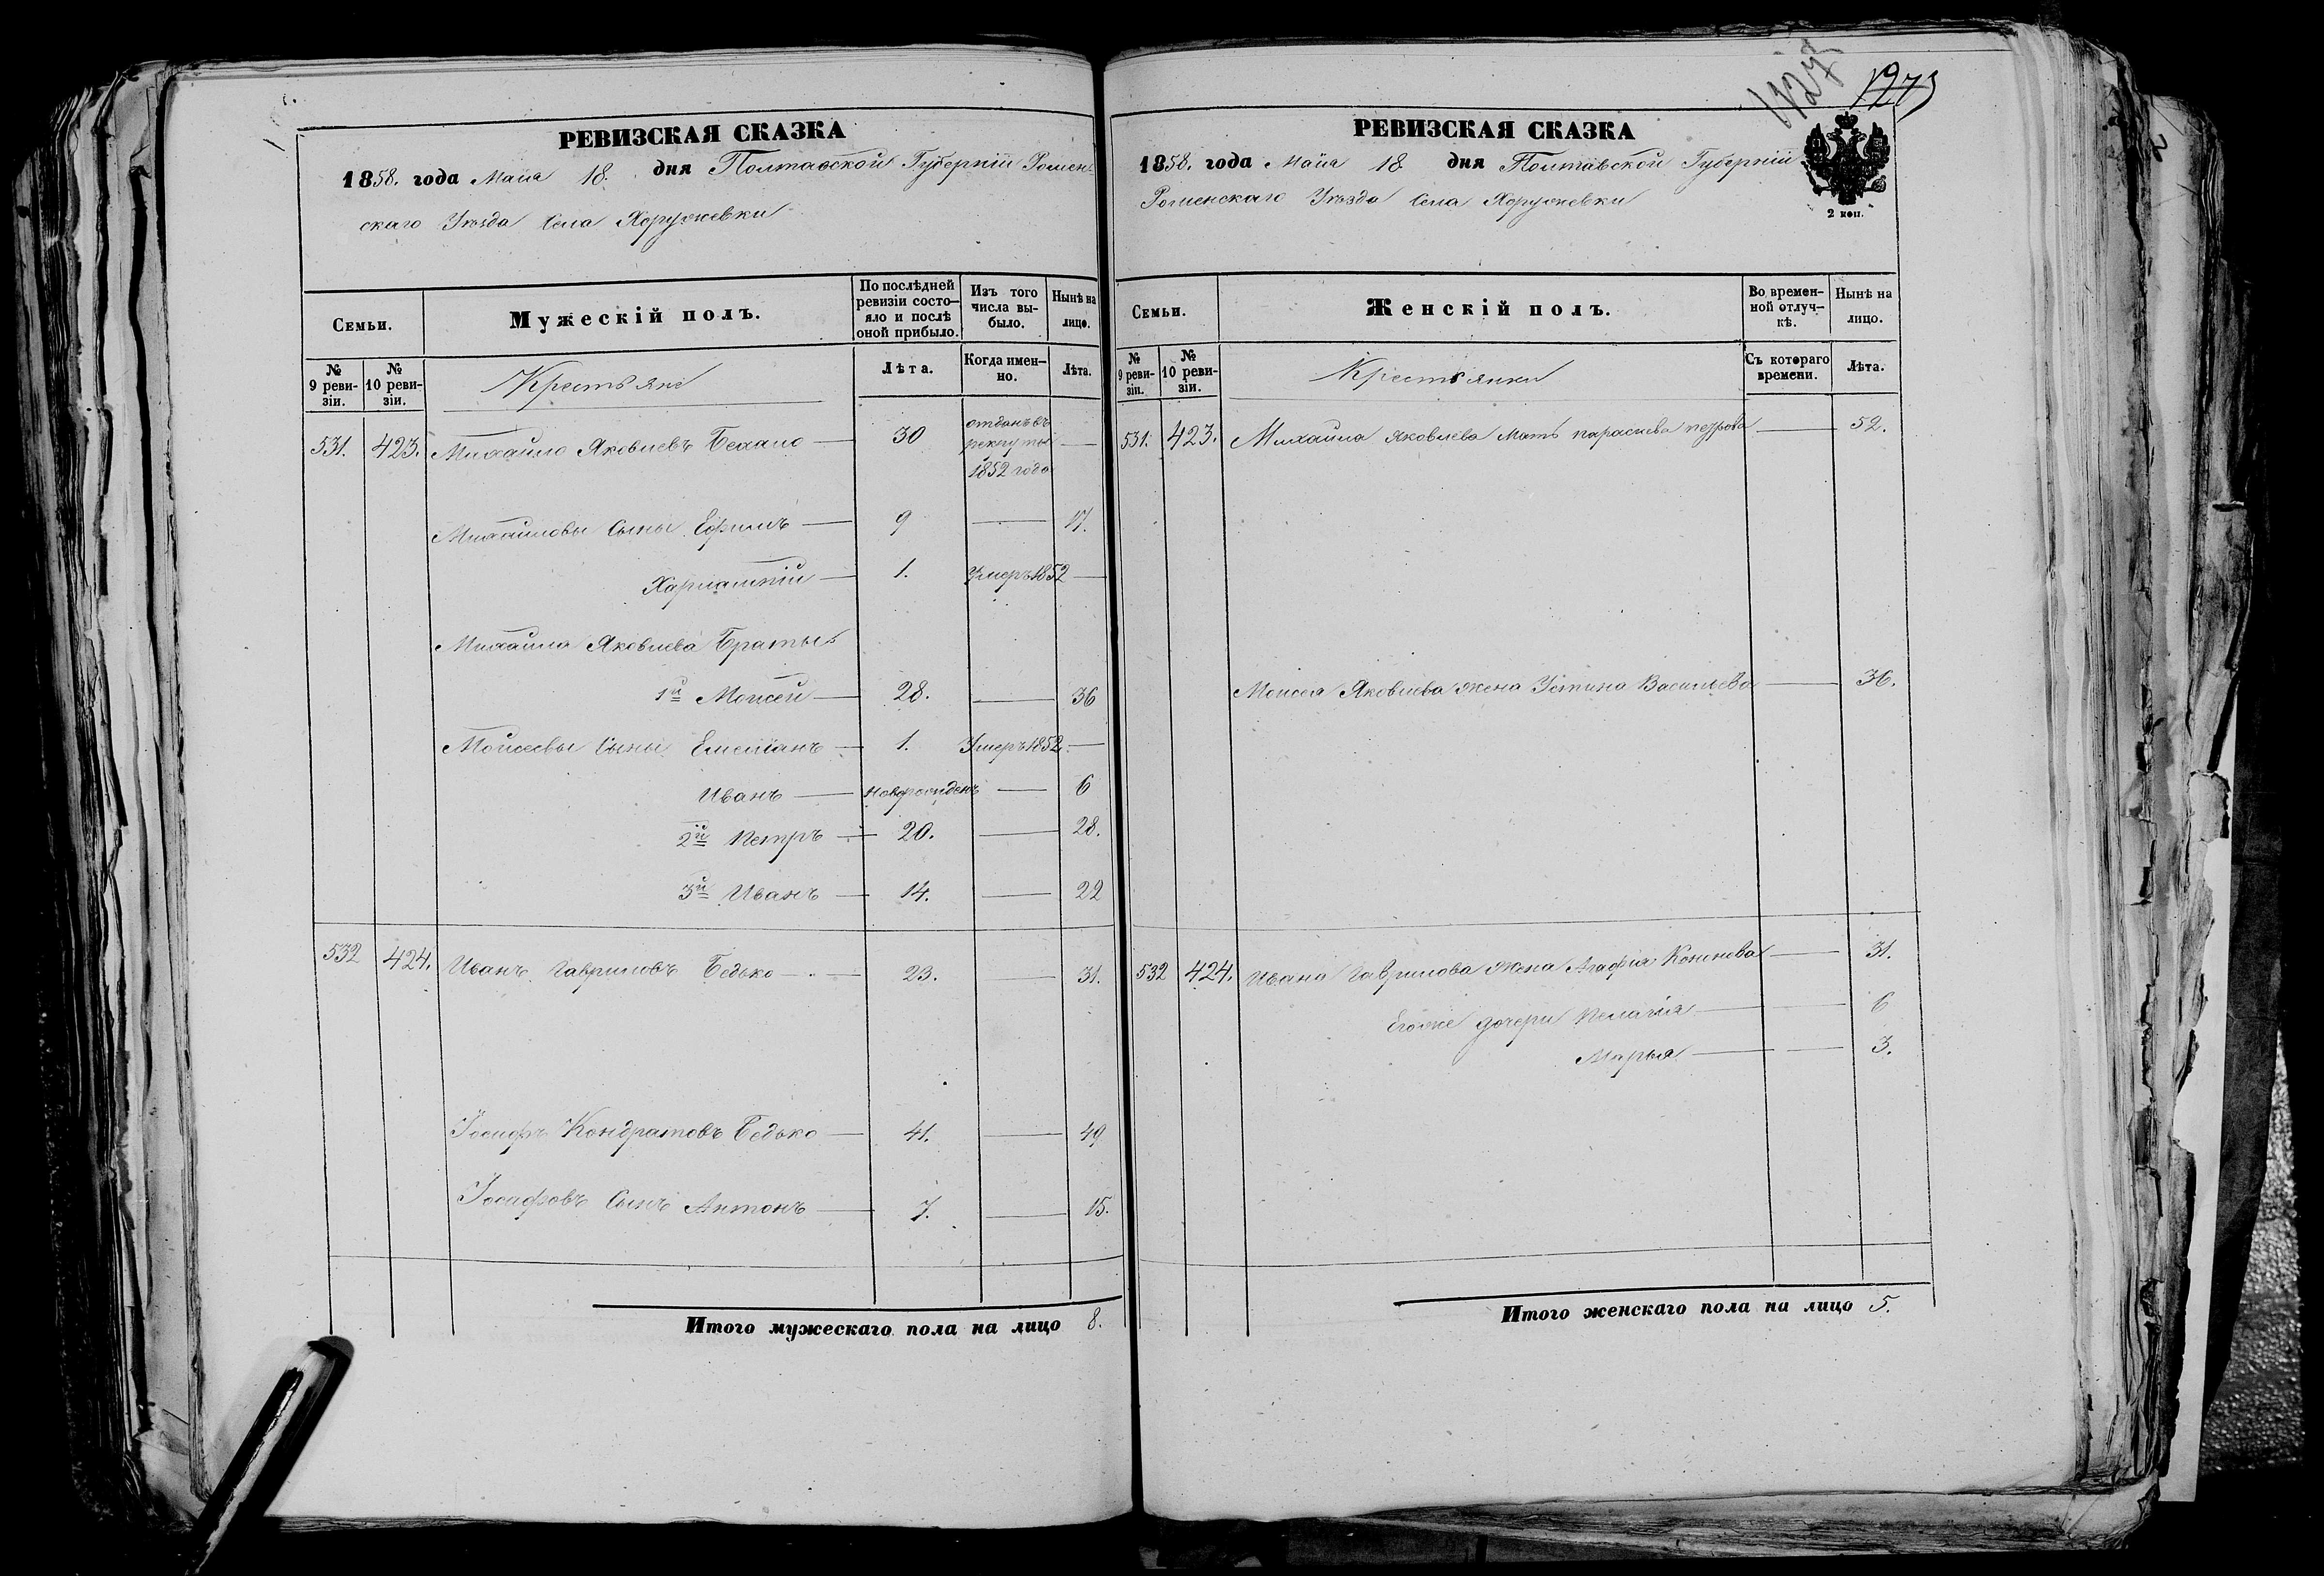 РЕВИЗСКАЯ СКАЗКА
1858. года Маия 18. дня Полтавской Губерніи Ромен-
скаго Уѣзда Села Хоружевки
Семьи.
Мужескій полъ.
По послѣдней ревизіи состояло и послѣ оной прибыло.
Изъ того числа выбыло.
Нынѣ на лицо.
№ 9 ревизіи.
№ 10 ревизіи.
Крестьяне
Лѣта.
Когда именно.
Лѣта.
531. 423. Михайло Яковлевъ 30 отданъ въ рекруты 1852 года
Михайловы Сыны Ефимъ 9 17.
Харлампій 1. Умеръ 1852
Михайла Яковлева Братья
1й Моисей 28. 36
Моисеевы Сыны Емеліанъ 1. Умеръ 1852.
Иванъ новорожденъ 6
2й Петръ 20. 28.
3й Иванъ 14. 22
532 424. Иванъ Гавриловъ Бедько 23. 31.
Іосифъ Кондратовъ Бедько 41. 49
Іосифовъ Сынъ Антонъ 7. 15.
Итого мужескаго пола на лицо 8.
127
РЕВИЗСКАЯ СКАЗКА
1858. года Маия 18 дня Полтавской Губерніи
Роменскаго Уѣзда Села Хоружевки
2 коп.
Семьи.
Женскій полъ.
Во временной отлучкѣ.
Нынѣ на лицо.
№ 9 ревизіи.
№ 10 ревизіи.
Крестьянки
Съ котораго времени.
Лѣта.
531. 423. Михайла Яковлева Мать Параскева Петрова 52.
Моисея Яковлева жена Устина Васильева 36.
532 424. Ивана Гаврилова жена Агафія 31.
Егоже дочери Пелагія 6
Марья 3.
Итого женскаго пола на лицо 5.